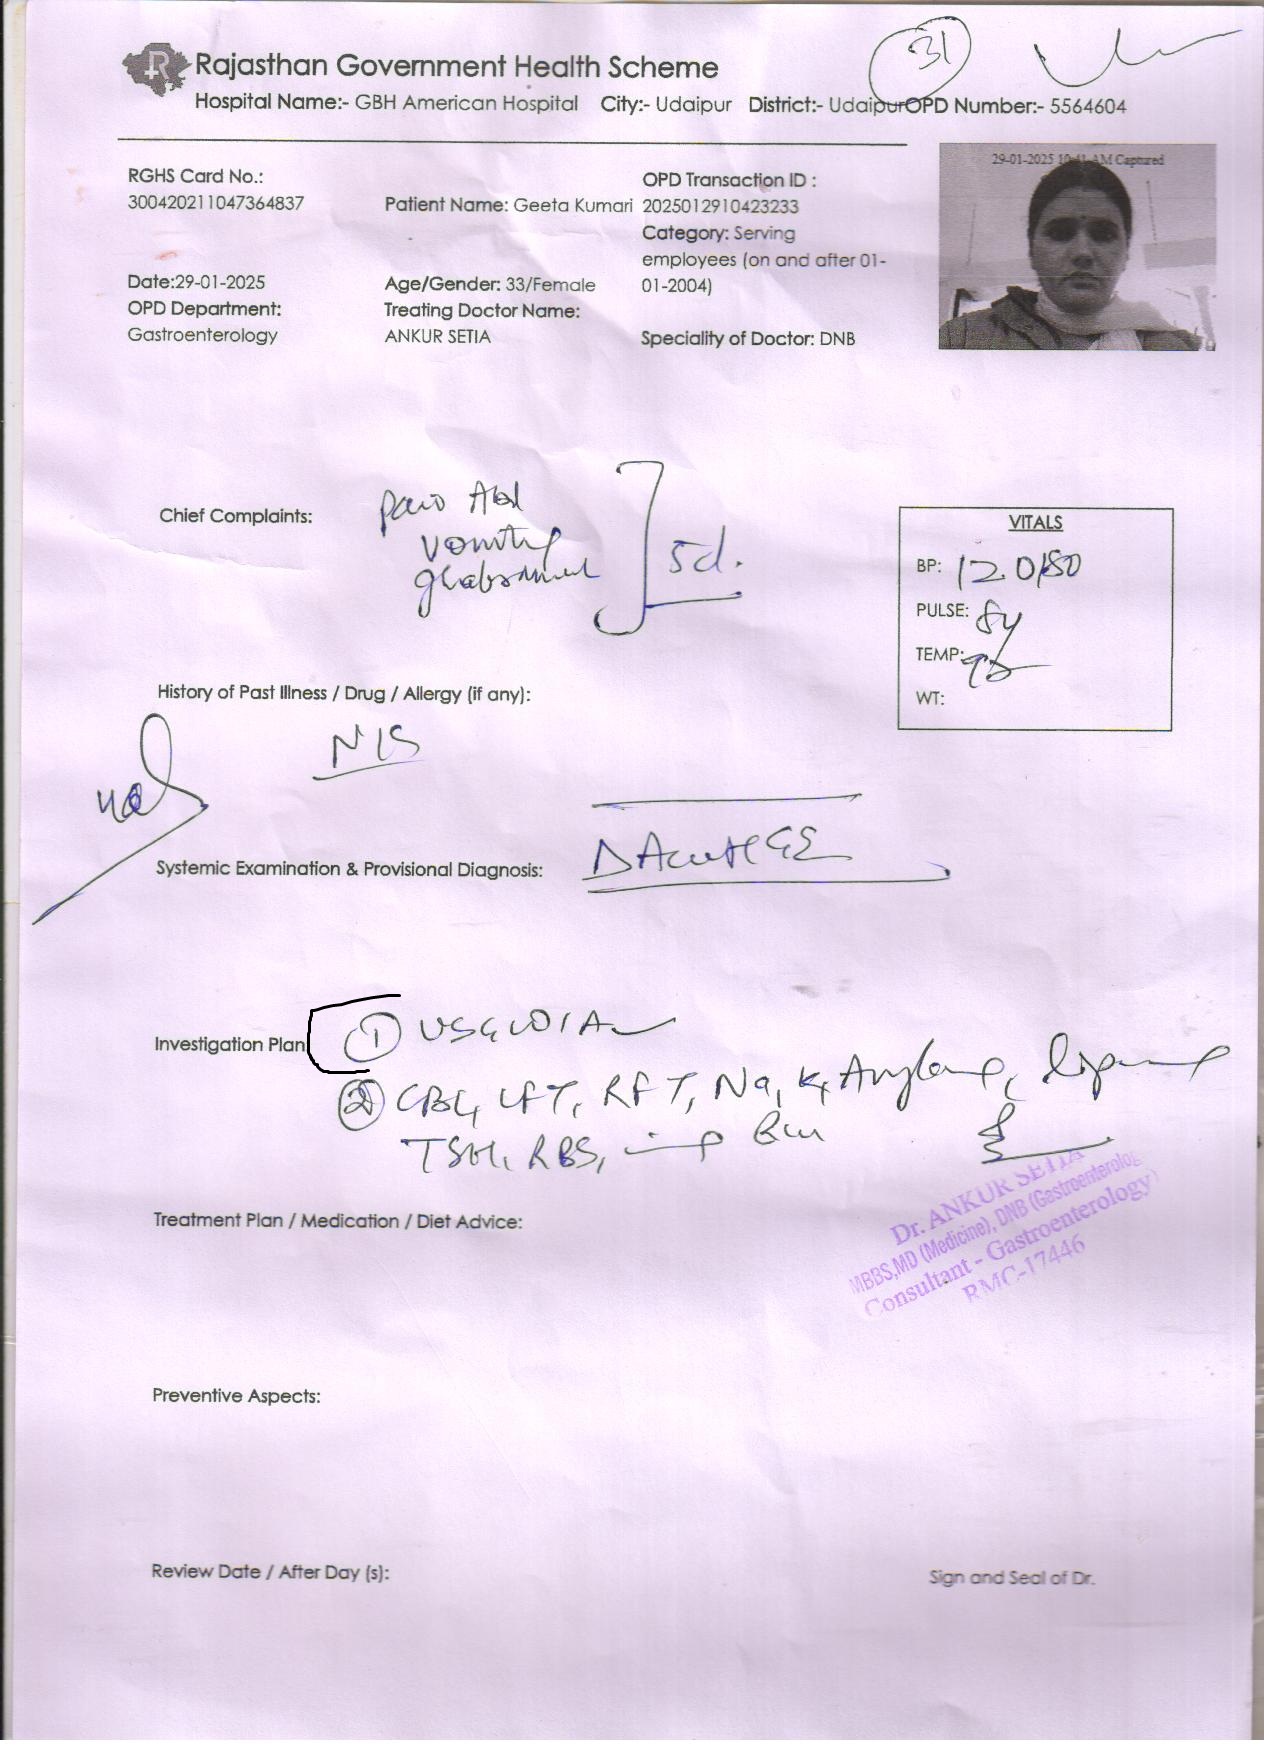 31
Rajasthan Government Health Scheme
Hospital Name:- GBH American Hospital City:- Udaipur District:- Udaipur OPD Number:- 5564604
29-01-2025 10:41 AM Captured
RGHS Card No.:
300420211047364837
Patient Name: Geeta Kumari
OPD Transaction ID :
2025012910423233
Category: Serving
employees (on and after 01-
01-2004)
Date:29-01-2025
Age/Gender: 33/Female
OPD Department:
Gastroenterology
Treating Doctor Name:
ANKUR SETIA
Speciality of Doctor: DNB
Chief Complaints:
Pain Abd
vomiting
5d.
VITALS
BP: 120/80
PULSE: 84
TEMP:
WT:
History of Past Illness / Drug / Allergy (if any):
Systemic Examination & Provisional Diagnosis:
Acute GE
Investigation Plan
① USG W/A
② CBC, LFT, RFT, Na, K, Amylase, lipase
TSH, RBS,
Dr. ANKUR SETIA
MBBS,MD (Medicine), DNB (Gastroenterolog
Consultant - Gastroenterology
RMC-17446
Treatment Plan / Medication / Diet Advice:
Preventive Aspects:
Review Date / After Day (s):
Sign and Seal of Dr.